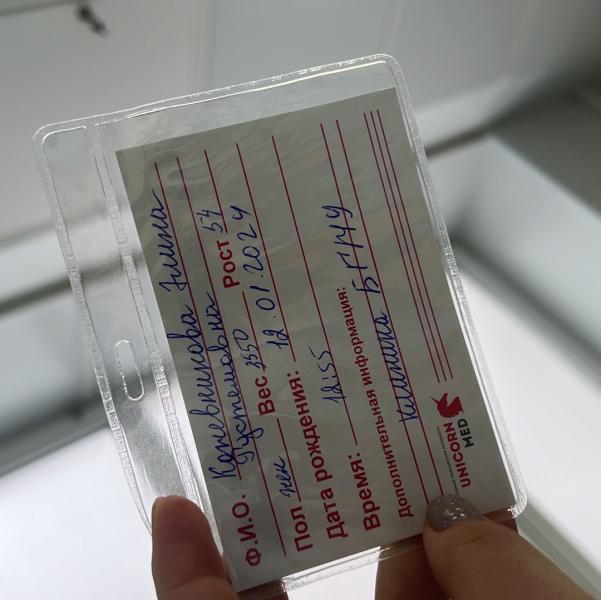 Ф.И.О. Кожевникова Элина
Рустемовна
Пол жен Вес 3550 Рост 54
Дата рождения: 12.01.2024
Время: 18:55
Дополнительная информация:
клиника БГМУ
UNICORN
MED